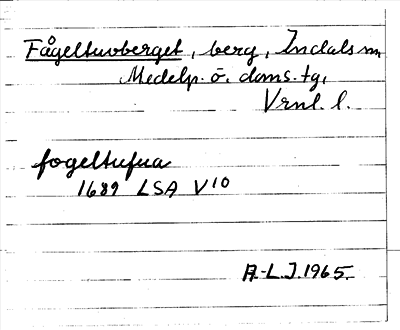 Fågeltuvberget, berg, Indals sn,
Medelp. ö. doms. tg,
Vrnl. l.
fogeltufua
1689 LSA V10
A-L.J. 1965.